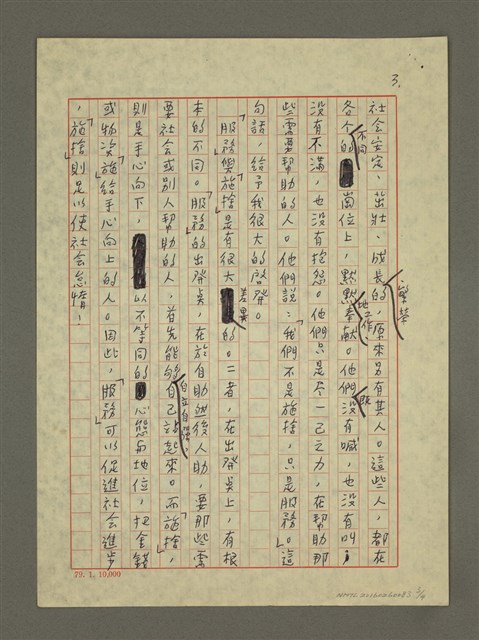 3.
社会安定、茁壯、成長、繁荣的，原來另有其人。這些人，都在
各个不同的崗位上，默默地工作、奉献。他們既没有喊，也没有叫，
没有不滿，也没有抱怨。他們只是尽一己之力，在幫助那
些需要幫助的人。他們說：「我們不是施捨，只是服務。」這
句話，給予我很大的啓發。
「服務」與「施捨」是有很大差異的。二者，在出發点上，有根
本的不同。「服務」的出發点，在於自助而後人助，要那些需
要社会或別人幫助的人，首先能夠自立自強自己站起來。而「施捨」，
則是手心向下，以不等同的心態与地位，把金錢
或物資「施」給手心向上的人。因此，「服務」可以促進社会進步
，「施捨」則足以使社会怠惰！
79. 1. 10,000
NMTL20160260083 3/4